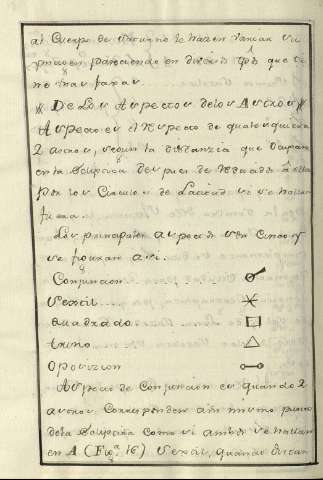 al Cuerpo de Saturno se hazen Varian
pareciendo en que
no
De Los Aspectos delos Astros
Aspecto es el Respecto de qualesquiera
2 astros, segun la distanzia que Ocupan
en la Ecliptica despues de
por los Circulos de Latitud se hallan
fuera.
Los principales aspectos son Cinco y
se figuran asi.
Conjuncion ☌
Sextil ⚹
quadrado □
trino △
Oposizion ☍
Aspecto de Conjuncion es quando 2
astros Corresponden a un mismo punto
dela Ecliptica Como si ambos se hallan
en A (Fig.ª 16) Sextil, quando distan